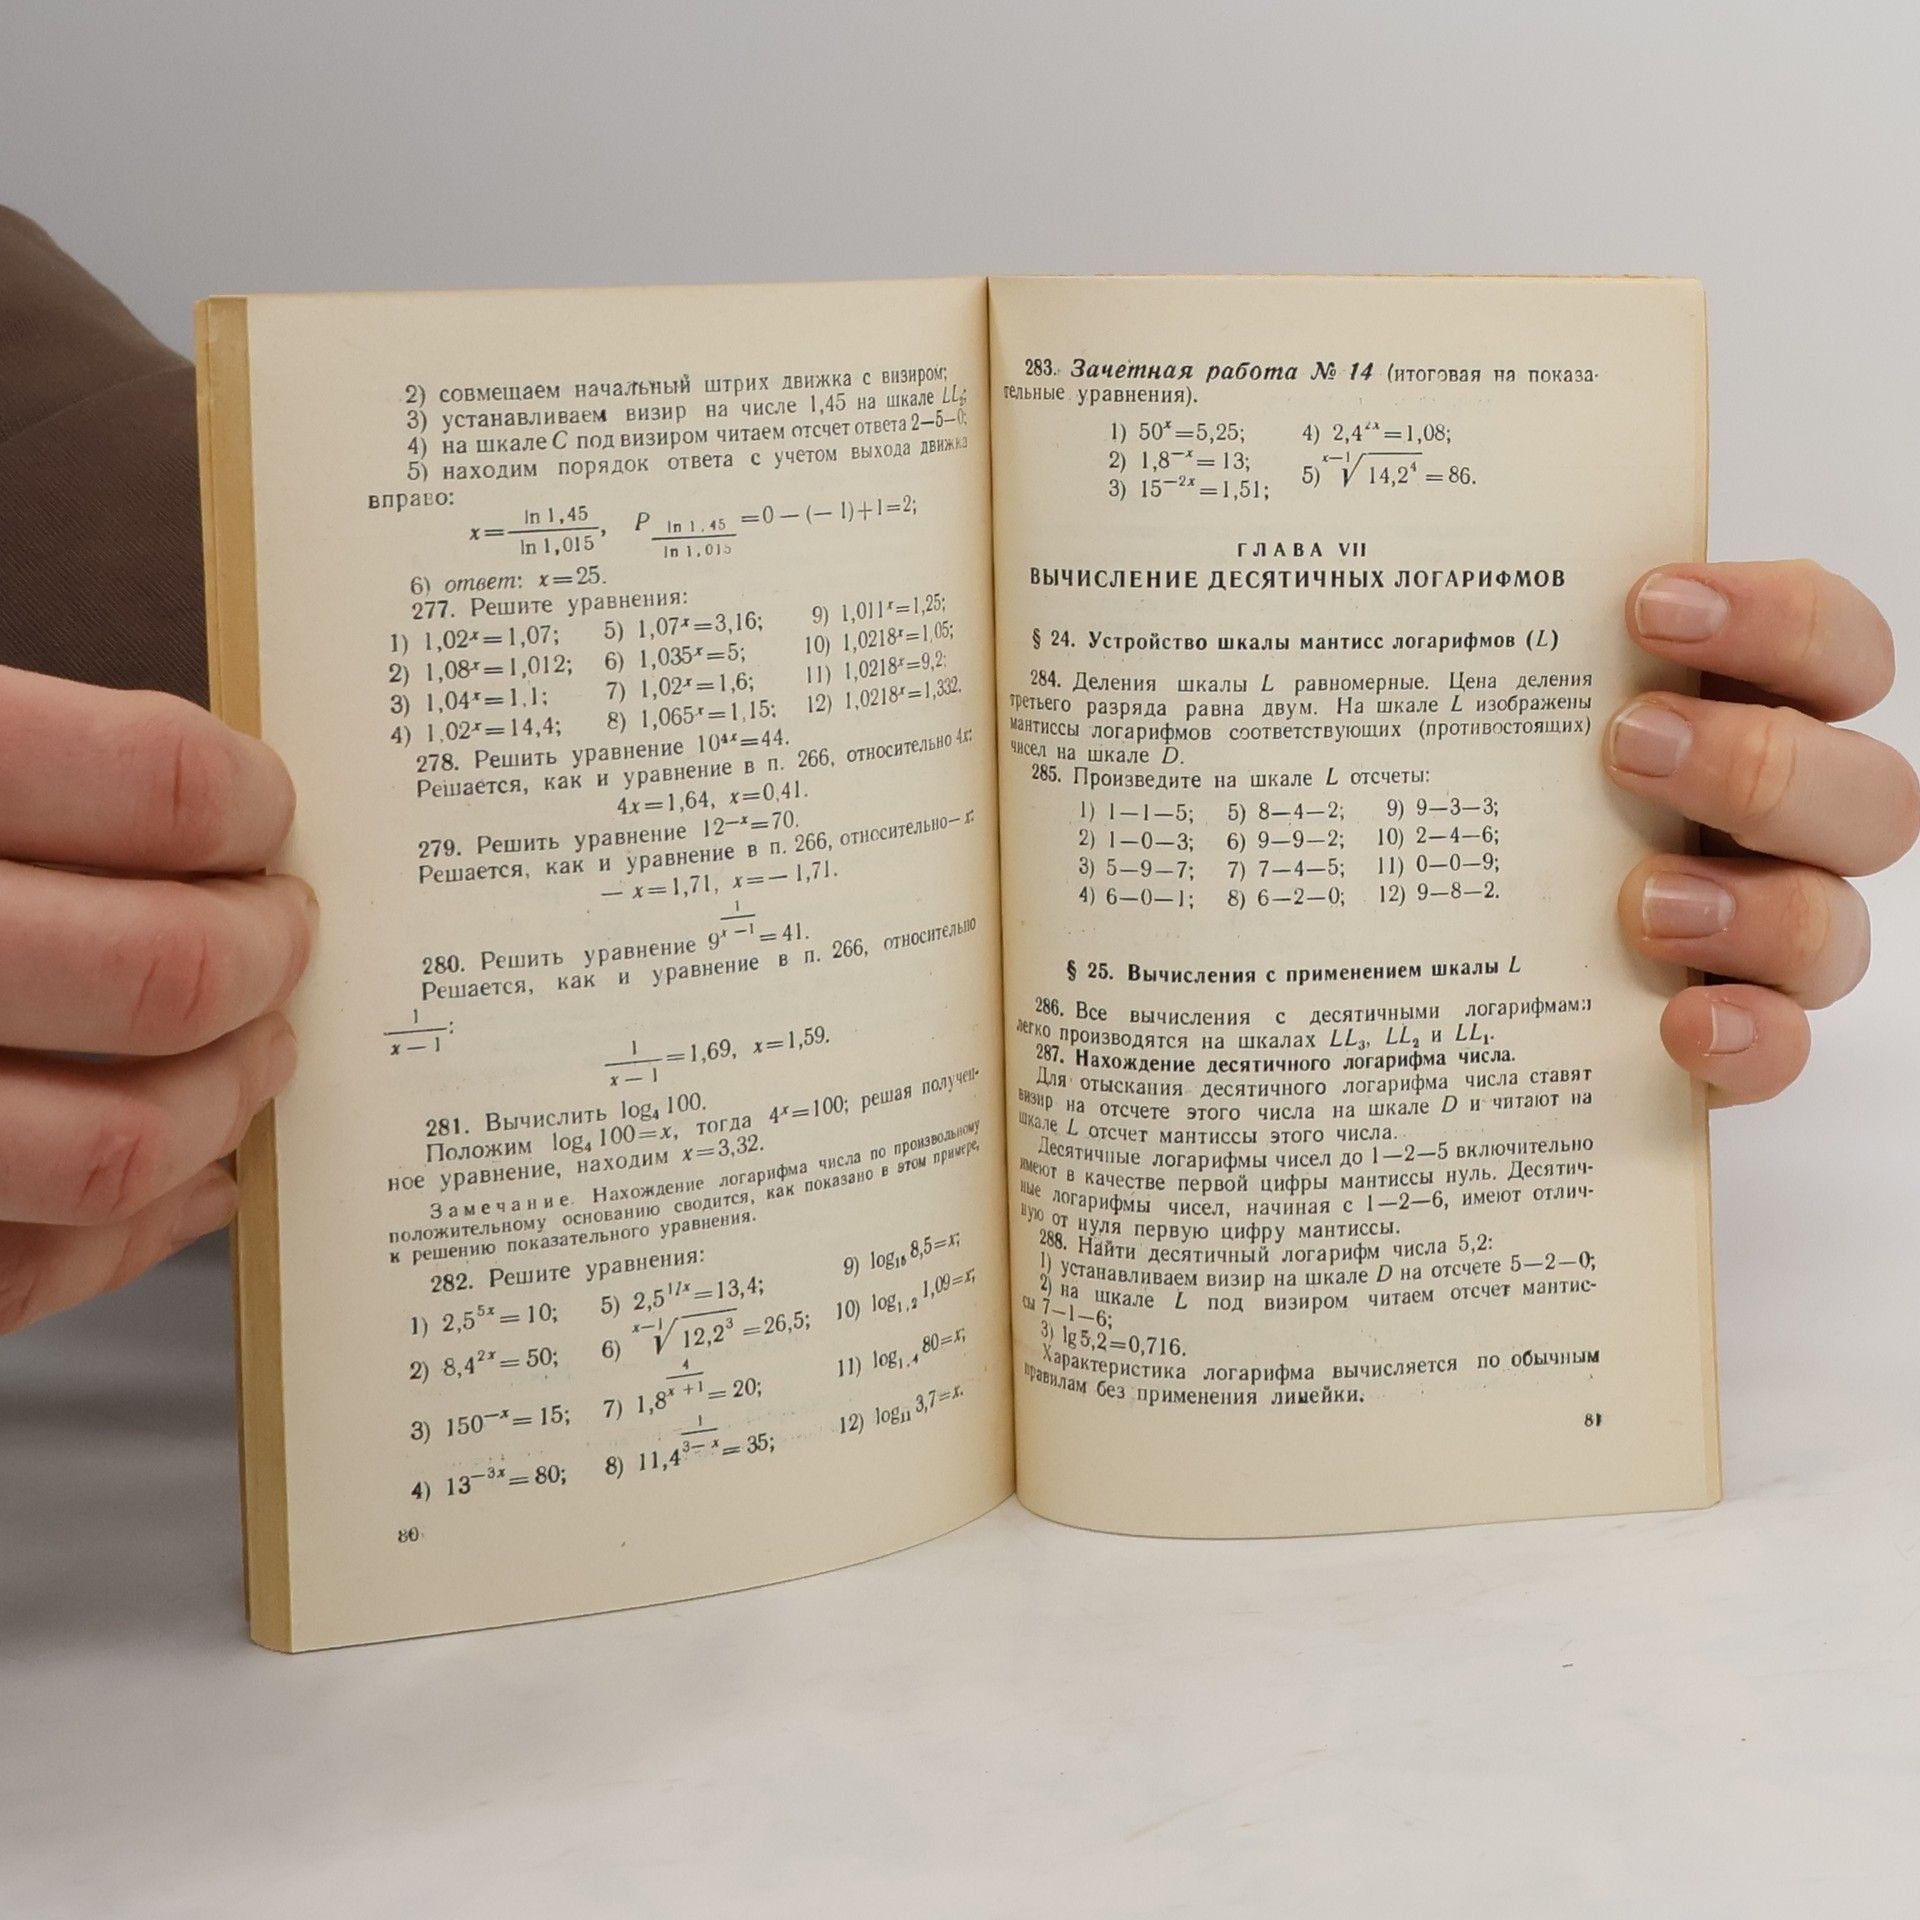 2) совмещаем начальный штрих движка с визиром;
3) устанавливаем визир на числе 1,45 на шкале LL₂;
4) на шкале C под визиром читаем отсчет ответа 2—5—0;
5) находим порядок ответа с учетом выхода движка
вправо:
x = ln 1,45 / ln 1,015, P ln 1,45 / ln 1,015 = 0 — (— 1) + 1 = 2;
6) ответ: x=25.
277. Решите уравнения:
1) 1,02ˣ=1,07; 5) 1,07ˣ=3,16; 9) 1,011ˣ=1,25;
2) 1,08ˣ=1,012; 6) 1,035ˣ=5; 10) 1,0218ˣ=1,05;
3) 1,04ˣ=1,1; 7) 1,02ˣ=1,6; 11) 1,0218ˣ=9,2;
4) 1,02ˣ=14,4; 8) 1,065ˣ=1,15; 12) 1,0218ˣ=1,332.
278. Решить уравнение 10⁴ˣ=44.
Решается, как и уравнение в п. 266, относительно 4x:
4x=1,64, x=0,41.
279. Решить уравнение 12⁻ˣ=70.
Решается, как и уравнение в п. 266, относительно— x:
— x=1,71, x=— 1,71.
280. Решить уравнение 9^(1/(x —1)) = 41.
Решается, как и уравнение в п. 266, относительно
1/(x — 1):
1/(x — 1) = 1,69, x=1,59.
281. Вычислить log₄ 100.
Положим log₄ 100=x, тогда 4ˣ=100; решая получен-
ное уравнение, находим x=3,32.
Замечание. Нахождение логарифма числа по произвольному
положительному основанию сводится, как показано в этом примере,
к решению показательного уравнения.
282. Решите уравнения:
1) 2,5⁵ˣ = 10; 5) 2,5^(1/x)=13,4; 9) log₁₆ 8,5=x;
2) 8,4²ˣ = 50; 6) ˣ⁻¹√12,2³ = 26,5; 10) log₁,₂ 1,09=x;
3) 150⁻ˣ = 15; 7) 1,8^(4/(x +1)) = 20; 11) log₁,₄ 80=x;
4) 13⁻³ˣ = 80; 8) 11,4^(1/(3— x)) = 35; 12) log₁₁ 3,7=x.
80
283. Зачетная работа № 14 (итоговая на показа-
тельные уравнения).
1) 50ˣ=5,25; 4) 2,4²ˣ=1,08;
2) 1,8⁻ˣ = 13; 5) ˣ⁻¹√14,2⁴ = 86.
3) 15⁻²ˣ=1,51;
ГЛАВА VII
ВЫЧИСЛЕНИЕ ДЕСЯТИЧНЫХ ЛОГАРИФМОВ
§ 24. Устройство шкалы мантисс логарифмов (L)
284. Деления шкалы L равномерные. Цена деления
третьего разряда равна двум. На шкале L изображены
мантиссы логарифмов соответствующих (противостоящих)
чисел на шкале D.
285. Произведите на шкале L отсчеты:
1) 1—1—5; 5) 8—4—2; 9) 9—3—3;
2) 1—0—3; 6) 9—9—2; 10) 2—4—6;
3) 5—9—7; 7) 7—4—5; 11) 0—0—9;
4) 6—0—1; 8) 6—2—0; 12) 9—8—2.
§ 25. Вычисления с применением шкалы L
286. Все вычисления с десятичными логарифмами
легко производятся на шкалах LL₃, LL₂ и LL₁.
287. Нахождение десятичного логарифма числа.
Для отыскания десятичного логарифма числа ставят
визир на отсчете этого числа на шкале D и читают на
шкале L отсчет мантиссы этого числа.
Десятичные логарифмы чисел до 1—2—5 включительно
имеют в качестве первой цифры мантиссы нуль. Десятич-
ные логарифмы чисел, начиная с 1—2—6, имеют отлич-
ную от нуля первую цифру мантиссы.
288. Найти десятичный логарифм числа 5,2:
1) устанавливаем визир на шкале D на отсчете 5—2—0;
2) на шкале L под визиром читаем отсчет мантис-
сы 7—1—6;
3) lg 5,2=0,716.
Характеристика логарифма вычисляется по обычным
правилам без применения линейки.
81